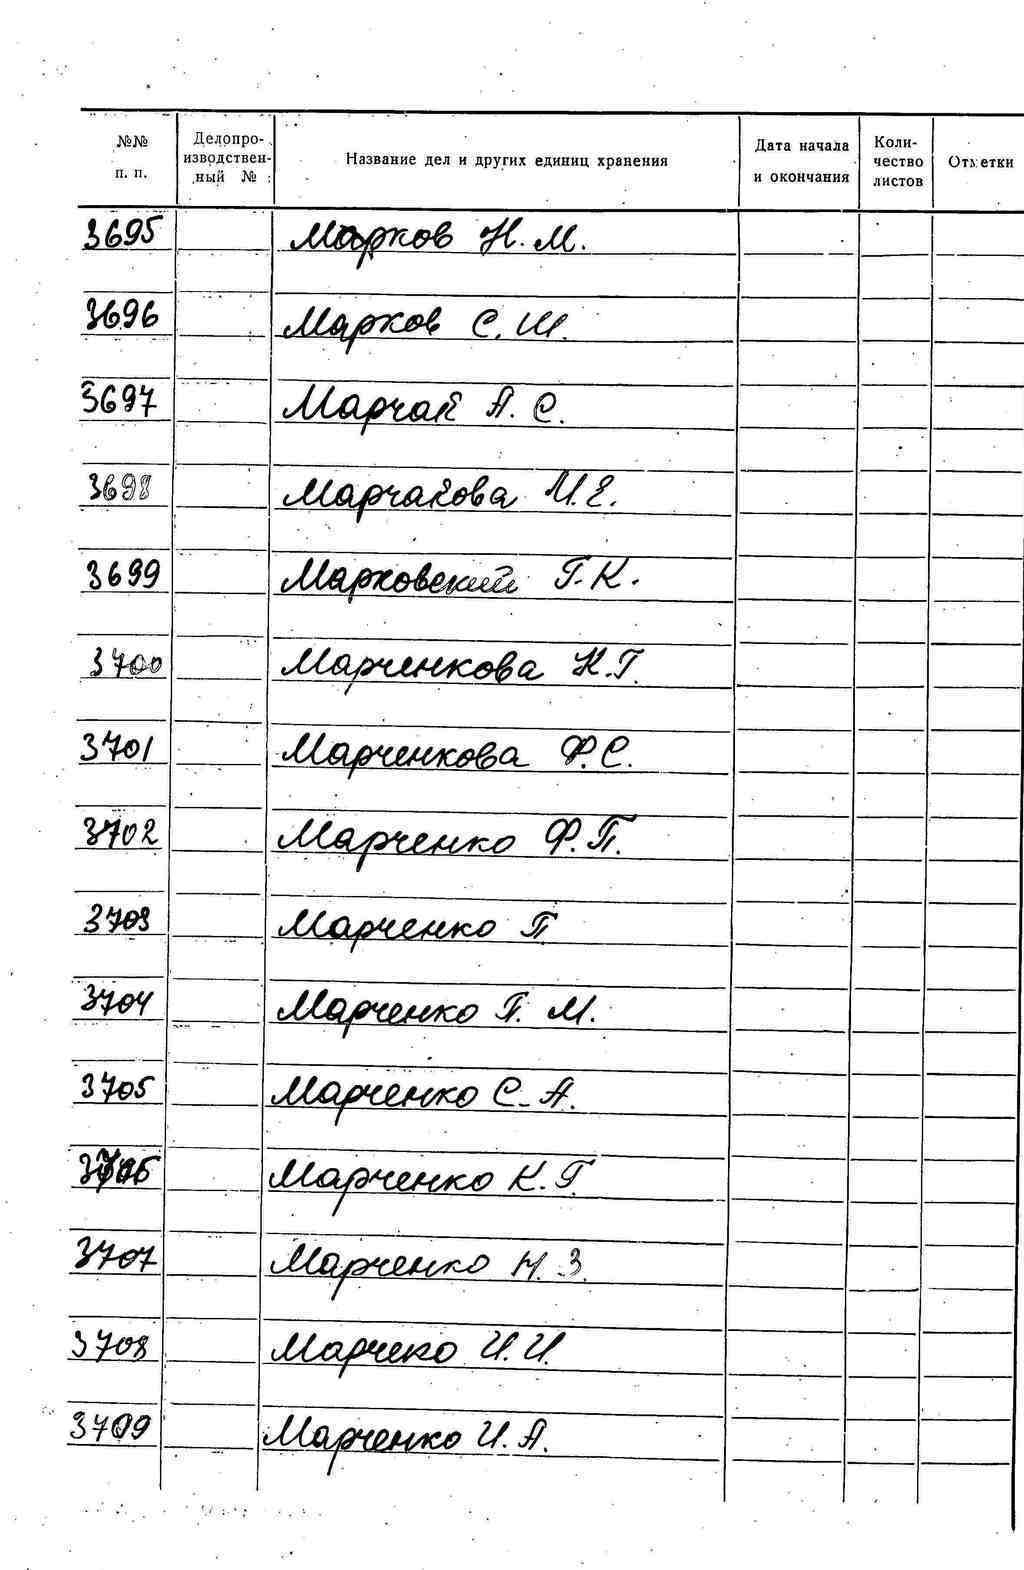 №№ п. п. Делопроизводственный № Название дел и других единиц хранения Дата начала и окончания Количество листов Отметки
3695 Марков Н. М.
3696 Марков С. Ш.
3697 Марчак А. С.
3698 Марчакова М. Е.
3699 Марковский Г. К.
3700 Марченкова Н. Г.
3701 Марченкова Ф. С.
3702 Марченко Ф. П.
3703 Марченко П
3704 Марченко П. М.
3705 Марченко С. А.
3706 Марченко К. Г.
3707 Марченко Н. З.
3708 Марчеко И. И.
3709 Марченко И. А.